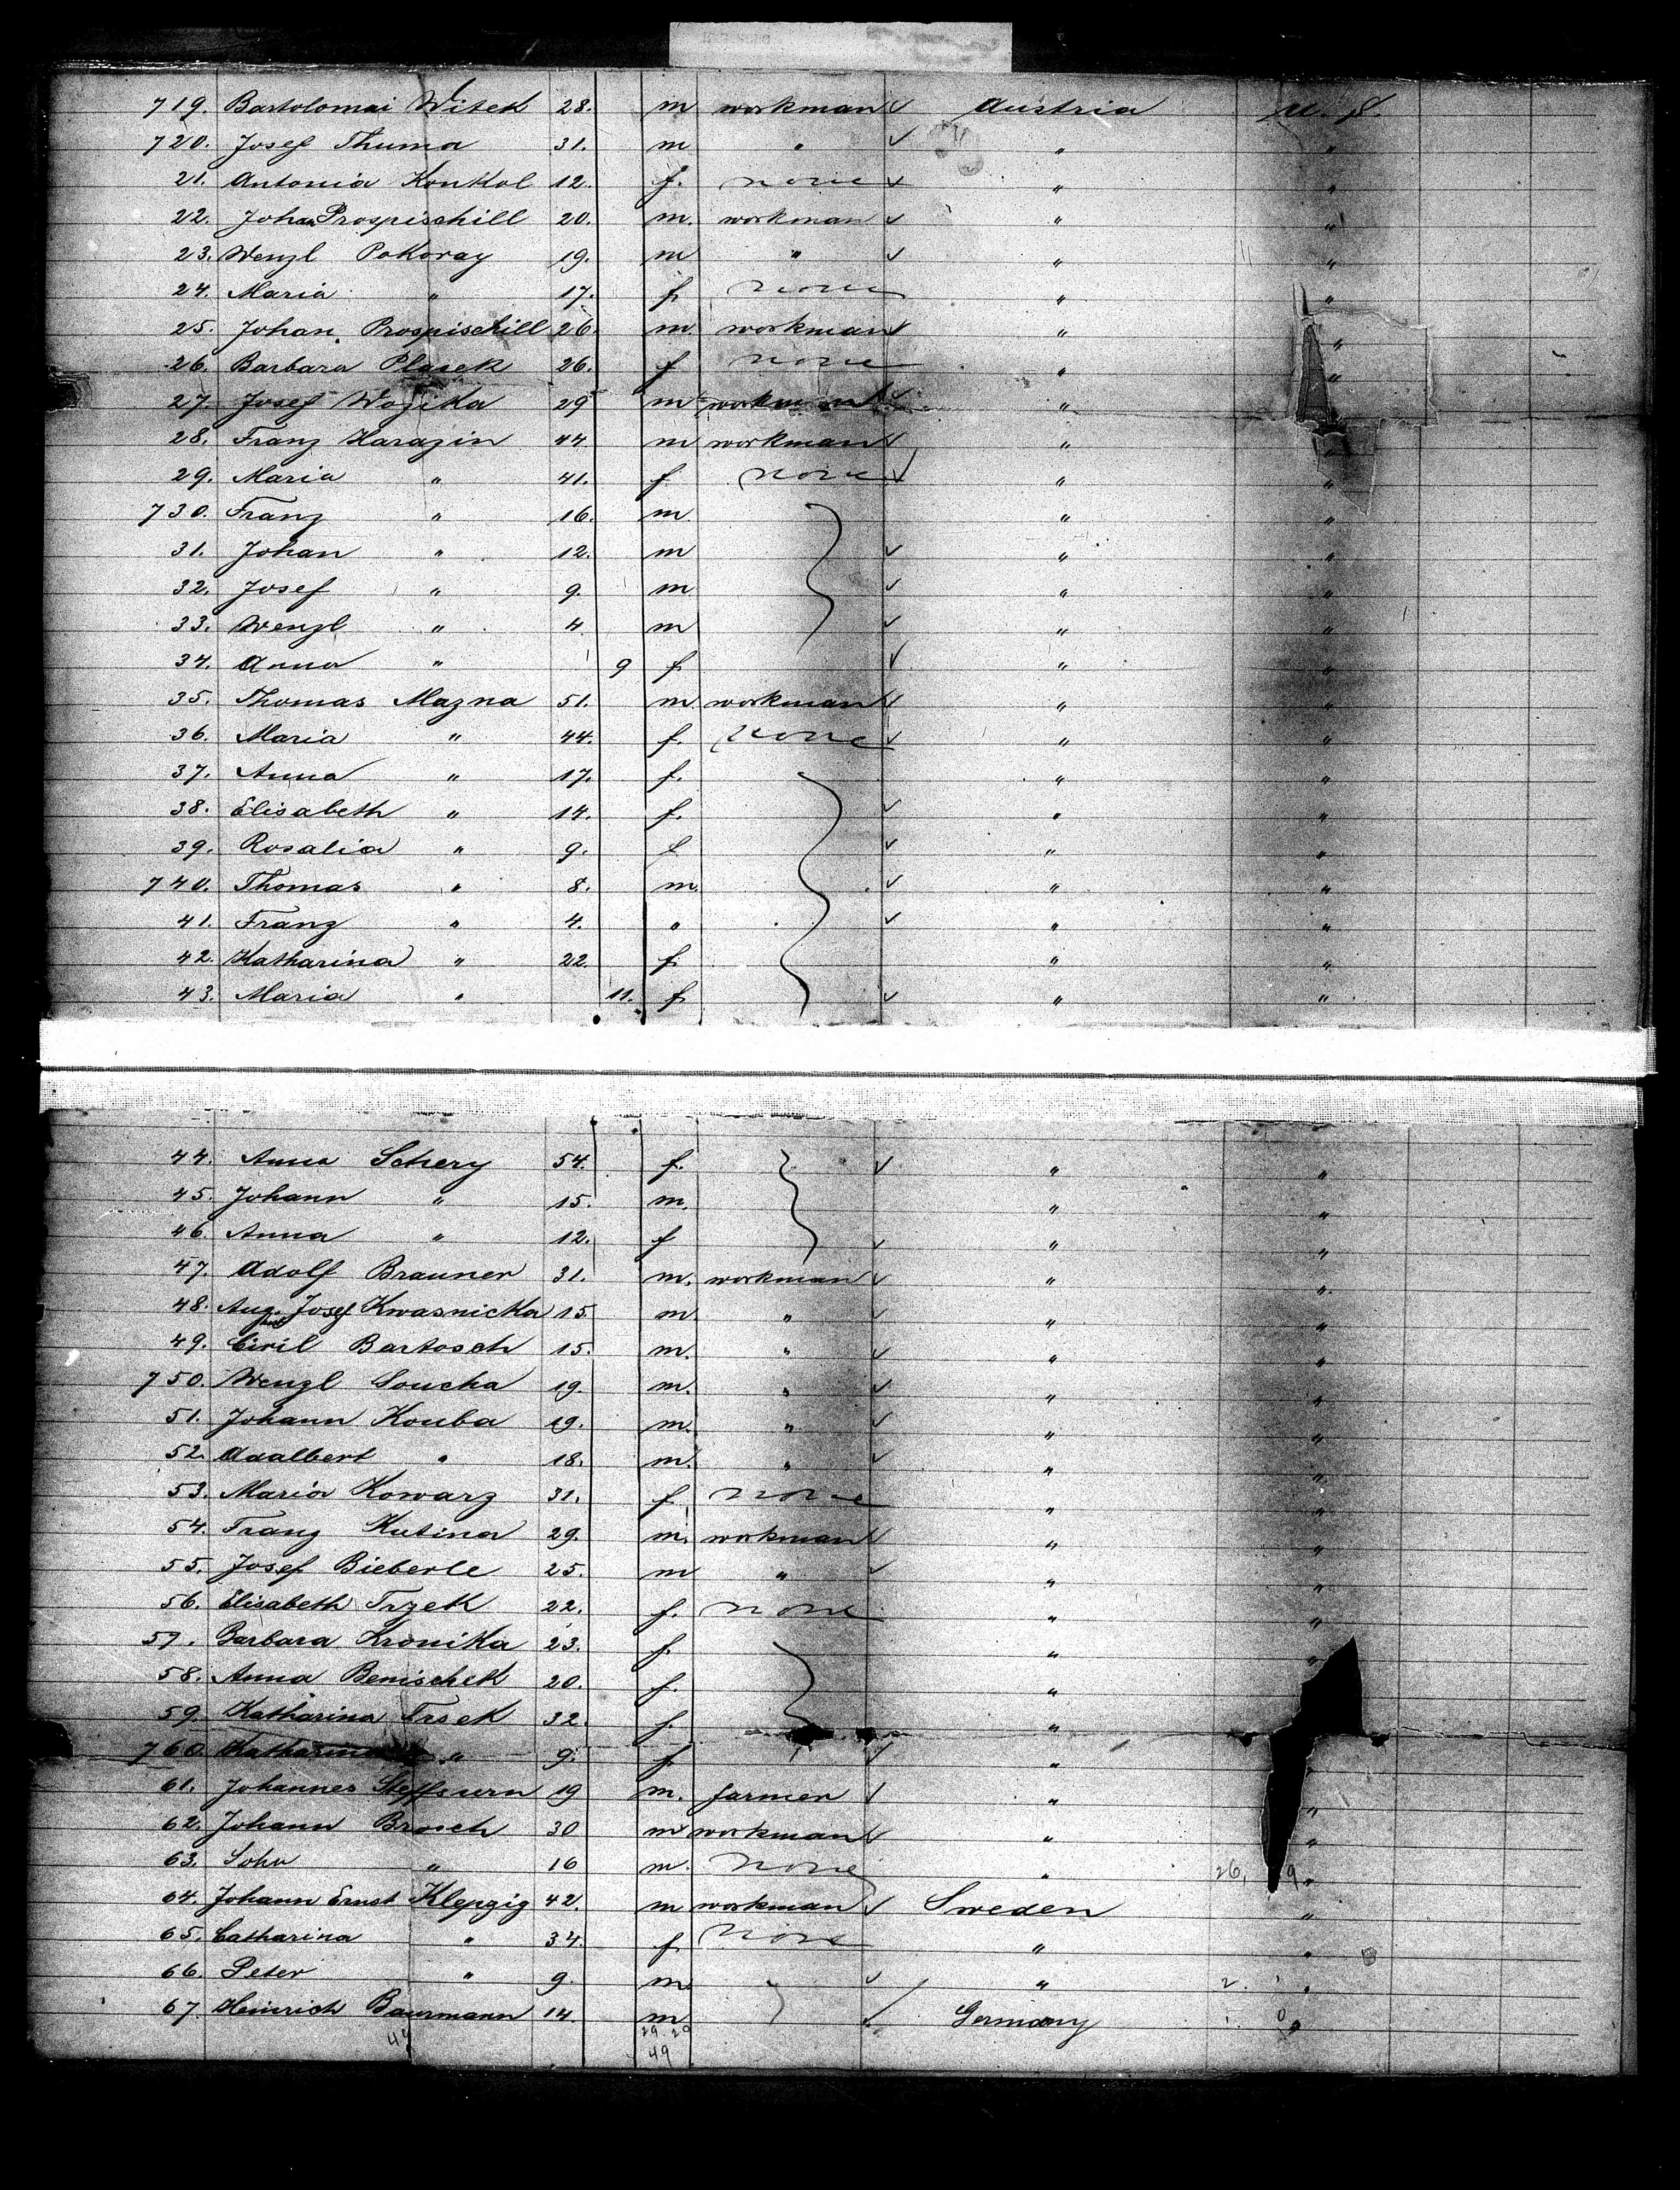 719. Bartolomai Witek 28. m workman ✓ Austria U. S.
720. Josef Thuma 31. m " ✓ " "
21. Antonia Konkol 12. f. none ✓ " "
22. Johan Prospischill 20. m. workman ✓ " "
23. Wenzl Pokoray 19. m " ✓ " "
24. Maria " 17. f none " "
25. Johan Prospischill 26. m workman ✓ " "
26. Barbara Plasek 26. f none " "
27. Josef Wozika 29 m workman ✓ " "
28. Franz Harazin 44 m workman ✓ " "
29. Maria " 41. f none ✓ " "
730. Franz " 16. m " "
31. Johan " 12. m ✓ " "
32. Josef " 9. m ✓ " "
33. Wenzl " 4 m ✓ " "
34. Anna " 9 f ✓ " "
35. Thomas Mazna 51. m workman ✓ " "
36. Maria " 44. f. none ✓ " "
37. Anna " 17. f. " "
38. Elisabeth " 14. f. ✓ " "
39. Rosalia " 9. f ✓ " "
740. Thomas " 8. m. ✓ " "
41. Franz " 4. " ✓ " "
42. Katharina " 22. f " "
43. Maria " 11. f ✓ " "
44. Anna Schery 54. f. ✓ " "
45. Johann " 15. m. " "
46. Anna " 12. f ✓ " "
47. Adolf Brauner 31. m. workman ✓ " "
48. Aug. Josef Kwasnicka 15 m. " ✓ " "
49. Ciril Bartosch 15. m. " ✓ " "
750. Wenzl Soucha 19. m. " ✓ " "
51. Johann Kouba 19. m. " ✓ " "
52. Adalbert " 18. m. " ✓ " "
53. Maria Kowarz 31. f none " "
54. Franz Kutina 29. m. workman ✓ " "
55. Josef Bieberle 25. m " ✓ " "
56. Elisabeth Trzek 22. f. none " "
57. Barbara Kronika 23. f. " "
58. Anna Benischek 20. f. "
59. Katharina Trsek 32. f. "
760 Katharina " 9. f ✓ " "
61. Johannes 19 m. farmer ✓ " "
62. Johann Brosch 30 m workman ✓ " "
63. " 16 m. none " 26, 9 "
64. Johann Ernst Klepzig 42. m workman ✓ Sweden "
65. Catharina " 34. f none " "
66. Peter " 9. m. ✓ " 2. "
67. Heinrich Baurmann 14 m ✓ Germany 1. 0 "
29. 20
49